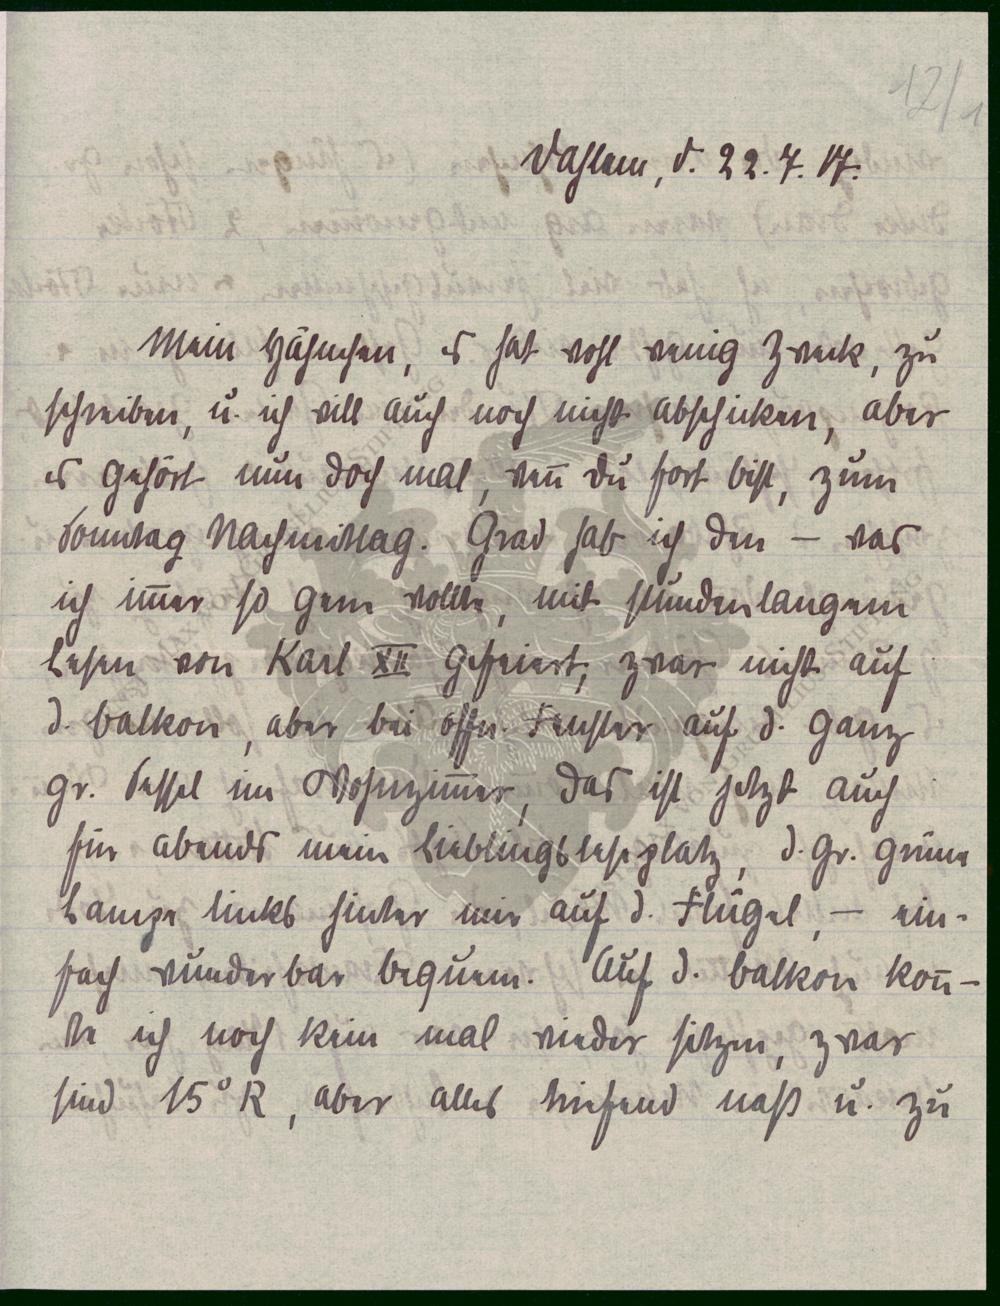 12/1
Dahlem, d. 22.7.17.
Mein Hähnchen, es hat wohl wenig Zweck, zu
schreiben, u. ich will auch noch nicht abschicken, aber
es gehört nun doch mal, wen̄ Du fort bist, zum
Sonntag Nachmittag. Grad hab ich den – was
ich im̄er so gern wollte, mit stundenlangem
Lesen von Karl XII gefeiert, zwar nicht auf
d. Balkon, aber bei offn. Fenster auf d. ganz
gr. Sessel im Wohnzim̄er, das ist jetzt auch
für abends mein Lieblingsleseplatz, d. gr. grüne
Lampe links hinter mir auf d. Flügel, – ein-
fach wunderbar bequem. Auf d. Balkon kon̄-
te ich noch kein mal wieder sitzen, zwar
sind 15° R, aber alles triefend naß u. zu